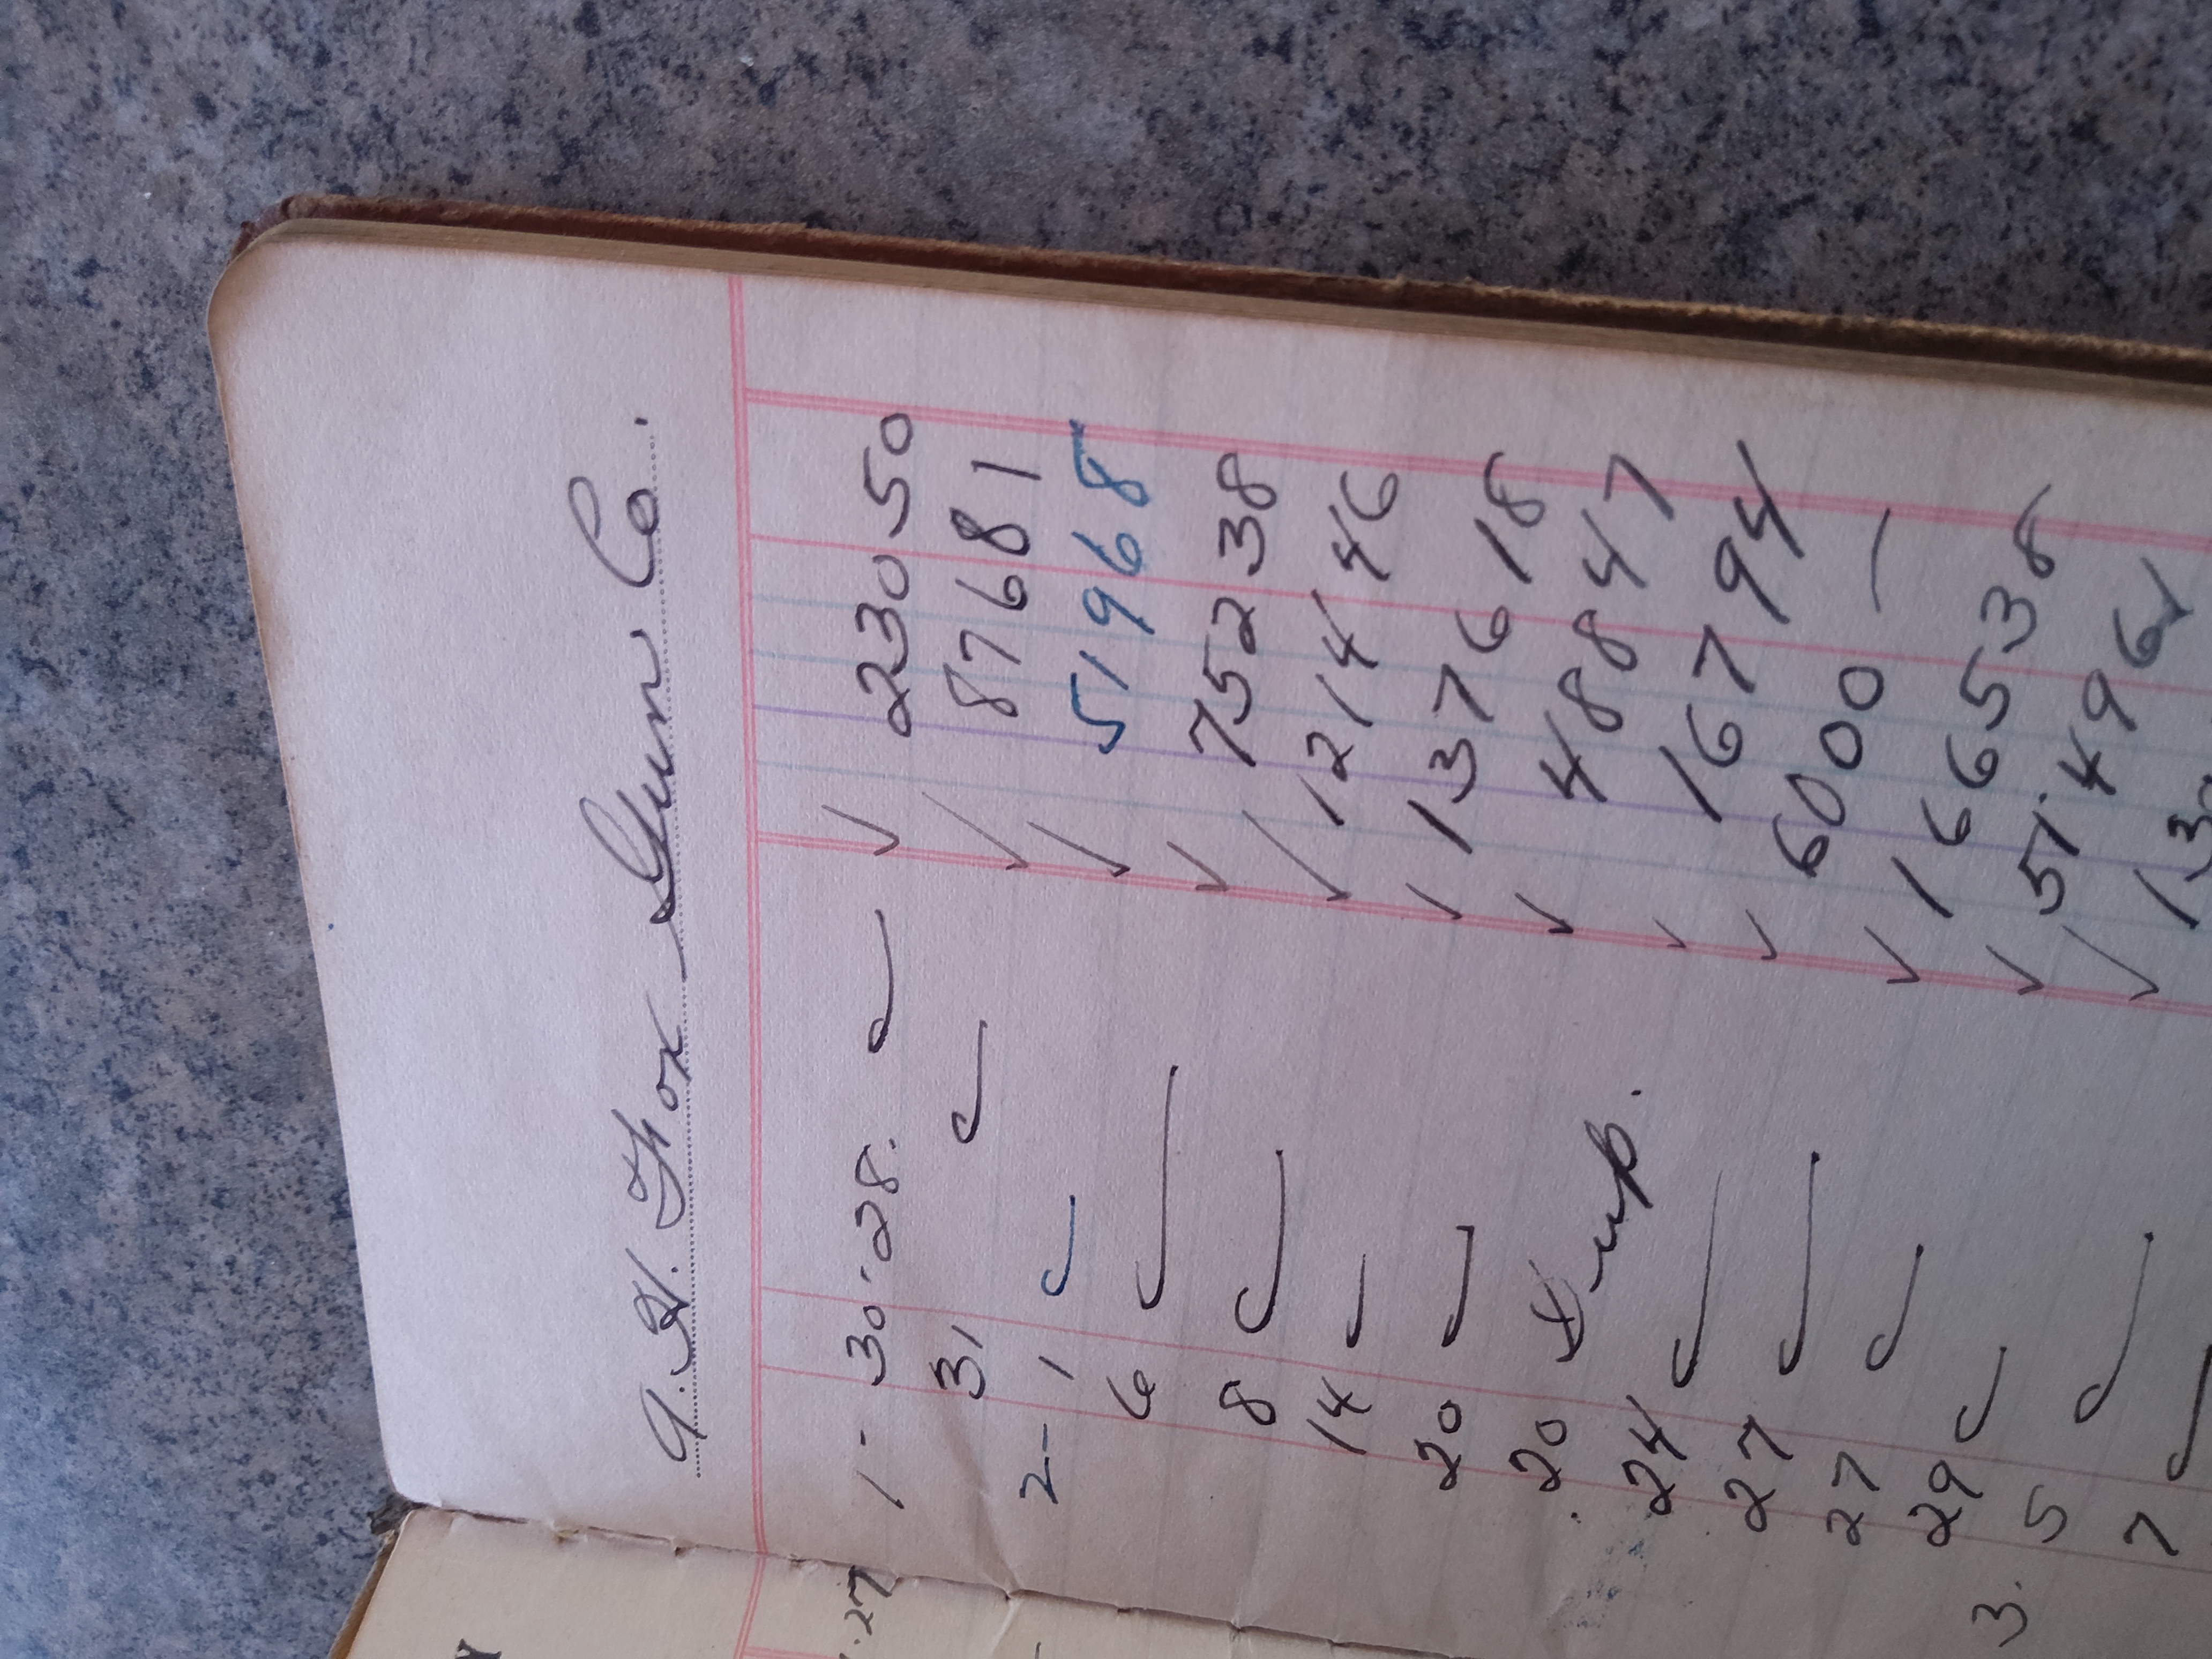 A. H. Fox Gun Co.
1-30-28. 230 50
31 876 81
2-1 519 68
6 752 38
8 1214 46
14 1376 18
20 488 47
20 Dup. 167 94
24 6000 —
27 1665 38
27 5149 61
29 13
3. 5
7
.27